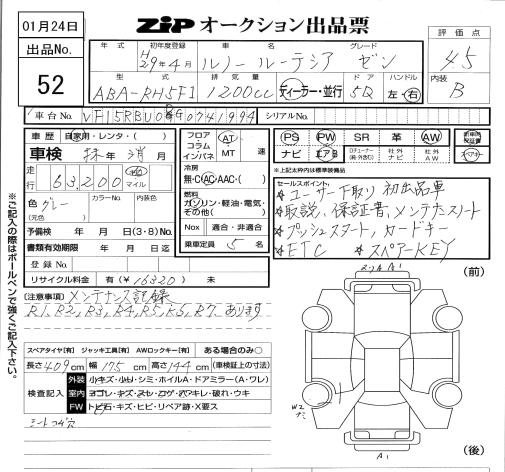 01月24日
出品No.
52
ZIP オークション出品票
年式 初年度登録 車名 グレード
H29年4月 ルノー ルーテシア ゼン
型式 排気量 ドア ハンドル
ABA-RH5F1 1200cc ディーラー・並行 5D 左・右
評価点
4.5
内装
B
車台No. VF15RBU0 G0741994 シリアルNo.
車歴 自家用・レンタ・( )
車検 抹消月
走行 63,200 km マイル
色 グレー カラーNo. 内装色
(元色)
予備検 年 月 日(3・8)No.
書類有効期限 年 月 日迄
登録No.
リサイクル料金 有(¥16320) 未
フロア コラム インパネ AT MT 速
冷房
無・C・AC・AAC・( )
燃料
ガソリン・軽油・電気・その他( )
Nox 適合・非適合
乗車定員 5 名
PS PW SR 革 AW
ナビ エアB Dチューナー(純・社外) 社外ナビ 社外AW
新車時保証書
スペアキー
※上記太枠内は標準装備品
セールスポイント
★ユーザー下取り 初出品車
★取説、保証書、メンテナスノート
★プッシュスタート、カードキー
★ETC ★スペアーKEY
(注意事項) メンテナンス記録
R1、R2、R3、R4、R5、R6、R7、あります
(前)
A1
スペアタイヤ[有] ジャッキ工具[有] AWロックキー[有] ある場合のみ○
長さ409cm 幅175cm 高さ144cm (車検証上の寸法)
検査記入
外装 小キズ・小凹・シミ・ホイルA・ドアミラー(A・ワレ)
室内 ヨゴレ・キズ・スレ・コゲ・ハアキレ・破れ・ウキ
FW トビ石・キズ・ヒビ・リペア跡・X要ス
シートコゲ穴
W2
A1
(後)
※ご記入の際はボールペンで強くご記入下さい。